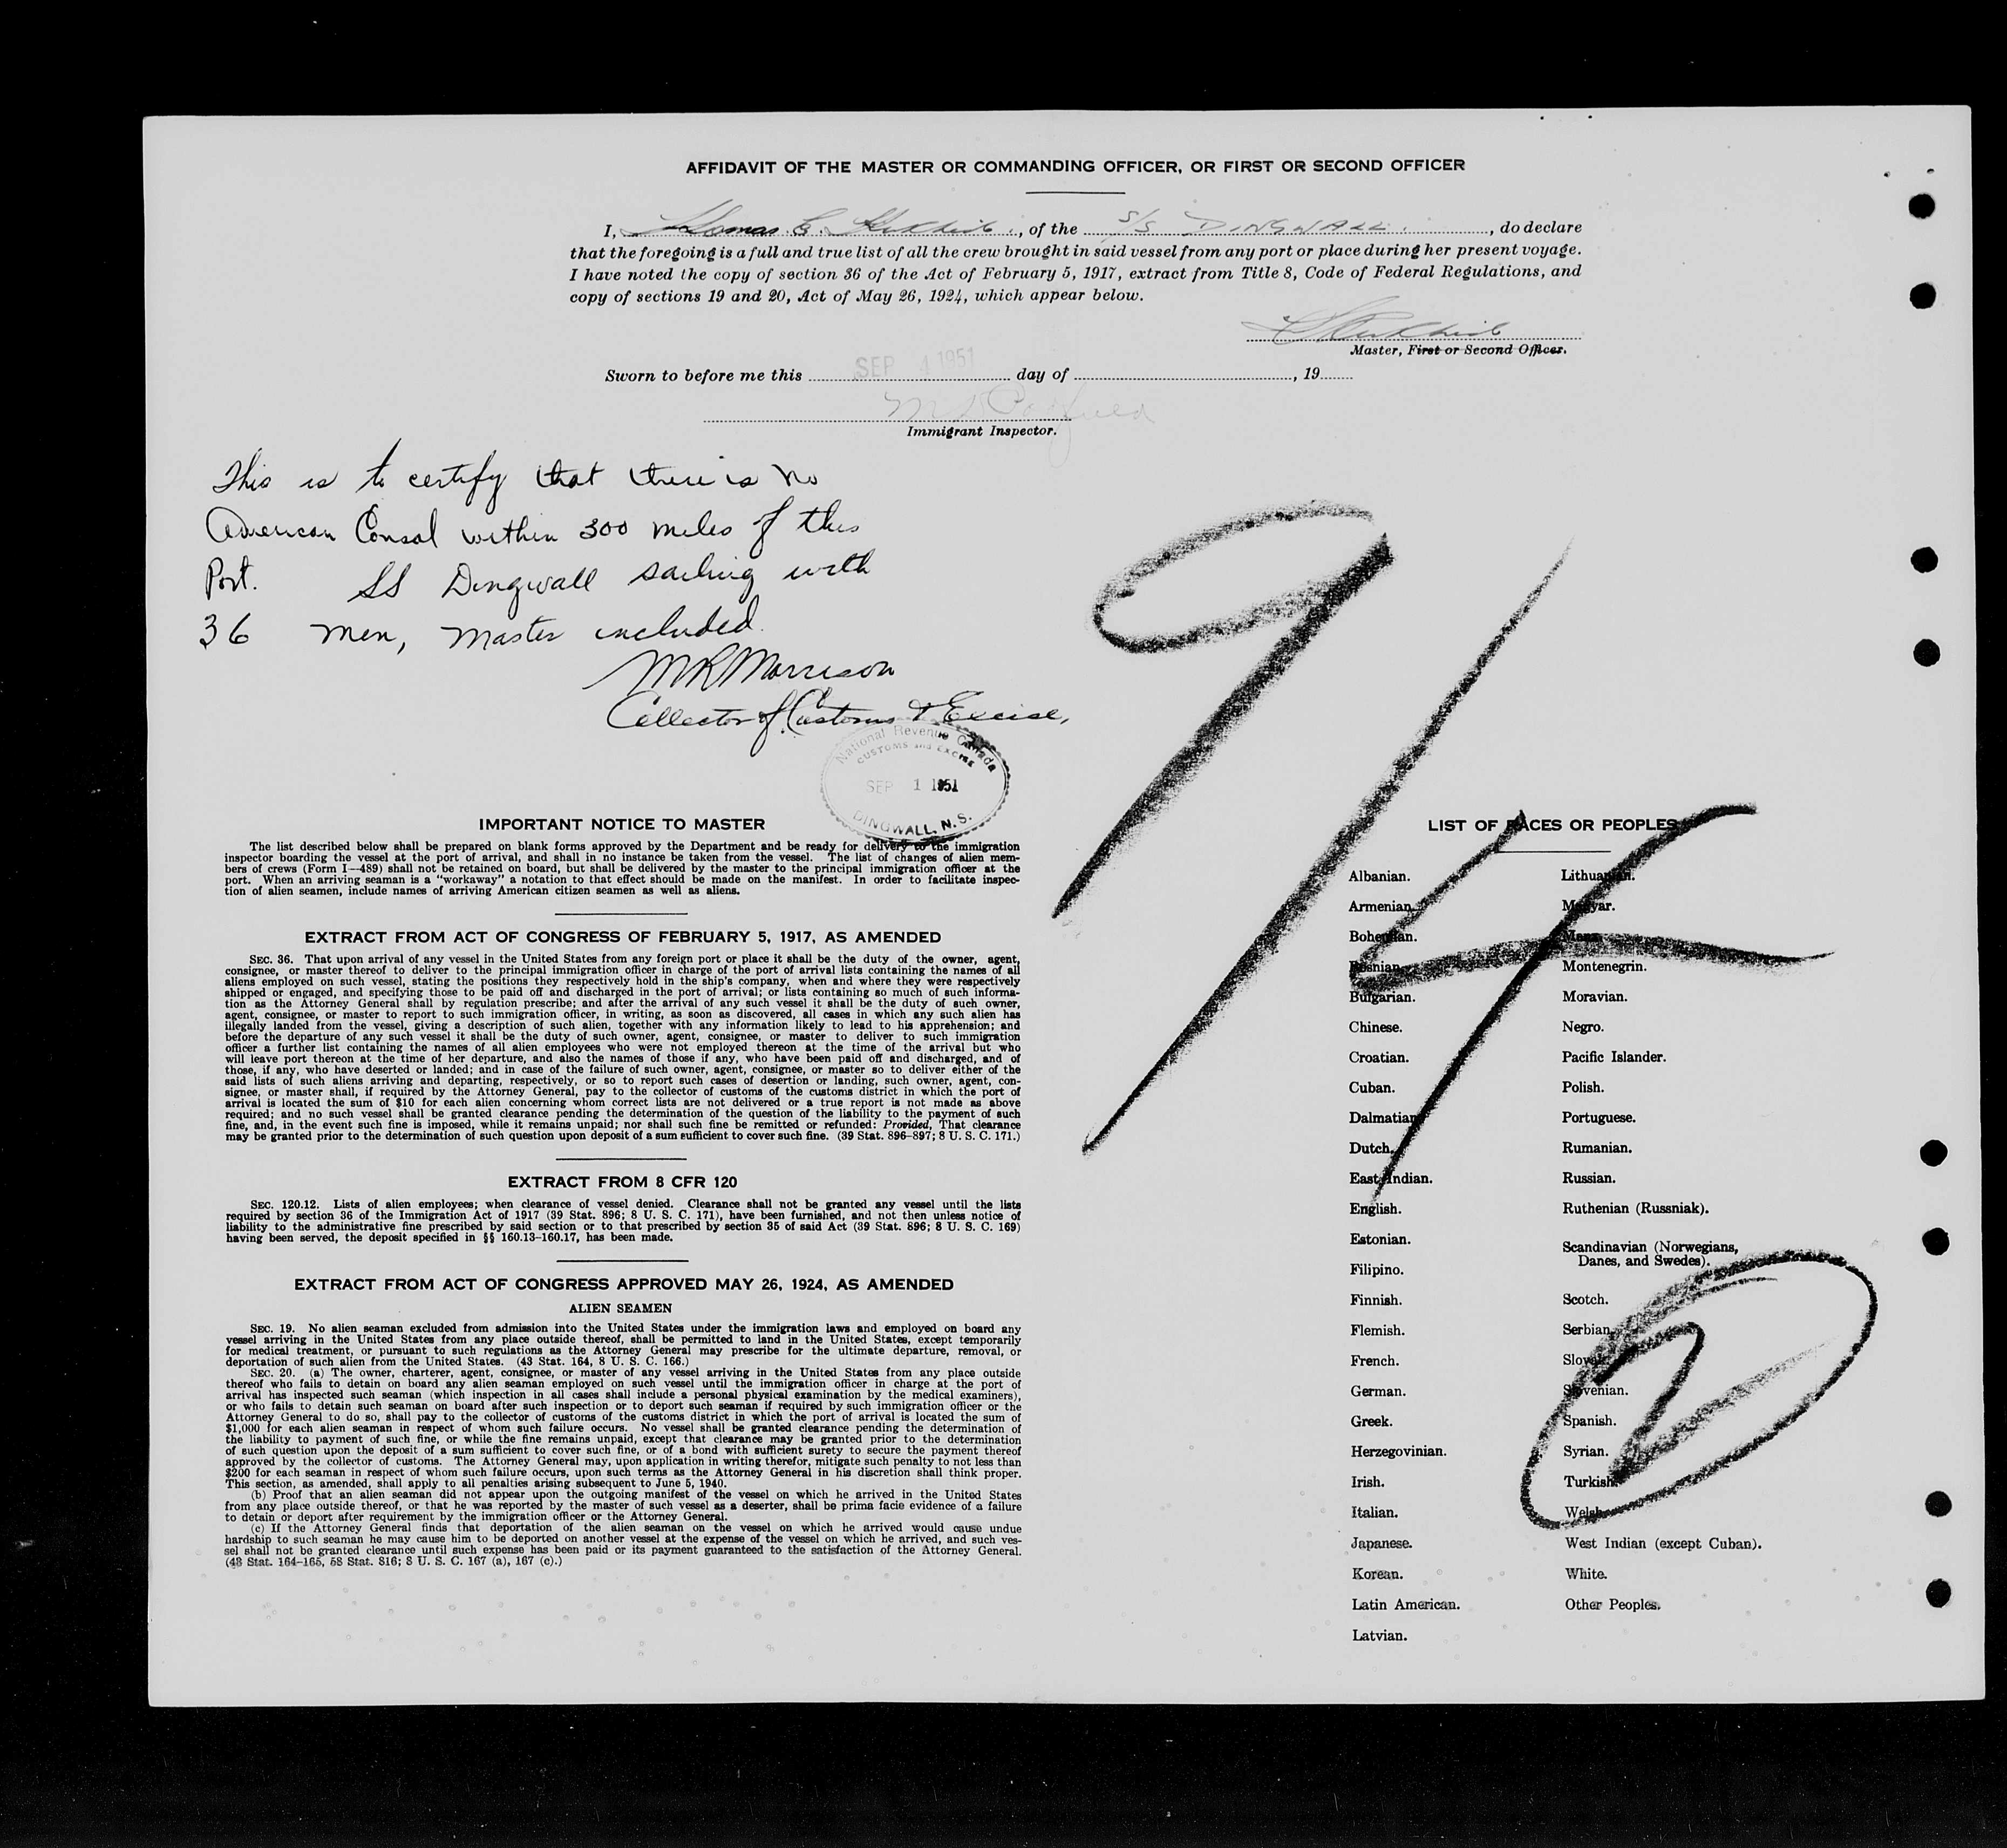 AFFIDAVIT OF THE MASTER OR COMMANDING OFFICER, OR FIRST OR SECOND OFFICER
I, Thomas , of the S/S DINGWALL , do declare
that the foregoing is a full and true list of all the crew brought in said vessel from any port or place during her present voyage.
I have noted the copy of section 36 of the Act of February 5, 1917, extract from Title 8, Code of Federal Regulations, and
copy of sections 19 and 20, Act of May 26, 1924, which appear below.
Master, First or Second Officer.
SEP 4 1951
Sworn to before me this day of , 19
Immigrant Inspector.
This is to certify that there is no
American Consal within 300 miles of this
Port. SS Dingwall sailing with
36 men, Master included.
MR Morrison
Collector of Customs & Excise,
National Revenue Canada
CUSTOMS and EXCISE
SEP 1 1951
DINGWALL, N.S.
9/4
2
IMPORTANT NOTICE TO MASTER
The list described below shall be prepared on blank forms approved by the Department and be ready for delivery to the immigration
inspector boarding the vessel at the port of arrival, and shall in no instance be taken from the vessel. The list of changes of alien mem-
bers of crews (Form I—489) shall not be retained on board, but shall be delivered by the master to the principal immigration officer at the
port. When an arriving seaman is a "workaway" a notation to that effect should be made on the manifest. In order to facilitate inspec-
tion of alien seamen, include names of arriving American citizen seamen as well as aliens.
EXTRACT FROM ACT OF CONGRESS OF FEBRUARY 5, 1917, AS AMENDED
SEC. 36. That upon arrival of any vessel in the United States from any foreign port or place it shall be the duty of the owner, agent,
consignee, or master thereof to deliver to the principal immigration officer in charge of the port of arrival lists containing the names of all
aliens employed on such vessel, stating the positions they respectively hold in the ship's company, when and where they were respectively
shipped or engaged, and specifying those to be paid off and discharged in the port of arrival; or lists containing so much of such informa-
tion as the Attorney General shall by regulation prescribe; and after the arrival of any such vessel it shall be the duty of such owner,
agent, consignee, or master to report to such immigration officer, in writing, as soon as discovered, all cases in which any such alien has
illegally landed from the vessel, giving a description of such alien, together with any information likely to lead to his apprehension; and
before the departure of any such vessel it shall be the duty of such owner, agent, consignee, or master to deliver to such immigration
officer a further list containing the names of all alien employees who were not employed thereon at the time of the arrival but who
will leave port thereon at the time of her departure, and also the names of those if any, who have been paid off and discharged, and of
those, if any, who have deserted or landed; and in case of the failure of such owner, agent, consignee, or master so to deliver either of the
said lists of such aliens arriving and departing, respectively, or so to report such cases of desertion or landing, such owner, agent, con-
signee, or master shall, if required by the Attorney General, pay to the collector of customs of the customs district in which the port of
arrival is located the sum of $10 for each alien concerning whom correct lists are not delivered or a true report is not made as above
required; and no such vessel shall be granted clearance pending the determination of the question of the liability to the payment of such
fine, and, in the event such fine is imposed, while it remains unpaid; nor shall such fine be remitted or refunded: Provided, That clearance
may be granted prior to the determination of such question upon deposit of a sum sufficient to cover such fine. (39 Stat. 896–897; 8 U. S. C. 171.)
EXTRACT FROM 8 CFR 120
SEC. 120.12. Lists of alien employees; when clearance of vessel denied. Clearance shall not be granted any vessel until the lists
required by section 36 of the Immigration Act of 1917 (39 Stat. 896; 8 U. S. C. 171), have been furnished, and not then unless notice of
liability to the administrative fine prescribed by said section or to that prescribed by section 35 of said Act (39 Stat. 896; 8 U. S. C. 169)
having been served, the deposit specified in §§ 160.13–160.17, has been made.
EXTRACT FROM ACT OF CONGRESS APPROVED MAY 26, 1924, AS AMENDED
ALIEN SEAMEN
SEC. 19. No alien seaman excluded from admission into the United States under the immigration laws and employed on board any
vessel arriving in the United States from any place outside thereof, shall be permitted to land in the United States, except temporarily
for medical treatment, or pursuant to such regulations as the Attorney General may prescribe for the ultimate departure, removal, or
deportation of such alien from the United States. (43 Stat. 164, 8 U. S. C. 166.)
SEC. 20. (a) The owner, charterer, agent, consignee, or master of any vessel arriving in the United States from any place outside
thereof who fails to detain on board any alien seaman employed on such vessel until the immigration officer in charge at the port of
arrival has inspected such seaman (which inspection in all cases shall include a personal physical examination by the medical examiners),
or who fails to detain such seaman on board after such inspection or to deport such seaman if required by such immigration officer or the
Attorney General to do so, shall pay to the collector of customs of the customs district in which the port of arrival is located the sum of
$1,000 for each alien seaman in respect of whom such failure occurs. No vessel shall be granted clearance pending the determination of
the liability to payment of such fine, or while the fine remains unpaid, except that clearance may be granted prior to the determination
of such question upon the deposit of a sum sufficient to cover such fine, or of a bond with sufficient surety to secure the payment thereof
approved by the collector of customs. The Attorney General may, upon application in writing therefor, mitigate such penalty to not less than
$200 for each seaman in respect of whom such failure occurs, upon such terms as the Attorney General in his discretion shall think proper.
This section, as amended, shall apply to all penalties arising subsequent to June 5, 1940.
(b) Proof that an alien seaman did not appear upon the outgoing manifest of the vessel on which he arrived in the United States
from any place outside thereof, or that he was reported by the master of such vessel as a deserter, shall be prima facie evidence of a failure
to detain or deport after requirement by the immigration officer or the Attorney General.
(c) If the Attorney General finds that deportation of the alien seaman on the vessel on which he arrived would cause undue
hardship to such seaman he may cause him to be deported on another vessel at the expense of the vessel on which he arrived, and such ves-
sel shall not be granted clearance until such expense has been paid or its payment guaranteed to the satisfaction of the Attorney General.
(43 Stat. 164–165, 58 Stat. 816; 8 U. S. C. 167 (a), 167 (c).)
LIST OF RACES OR PEOPLES
Albanian.
Armenian.
Bohemian.
Bosnian.
Bulgarian.
Chinese.
Croatian.
Cuban.
Dalmatian.
Dutch.
East Indian.
English.
Estonian.
Filipino.
Finnish.
Flemish.
French.
German.
Greek.
Herzegovinian.
Irish.
Italian.
Japanese.
Korean.
Latin American.
Latvian.
Lithuanian.
Magyar.
Manx.
Montenegrin.
Moravian.
Negro.
Pacific Islander.
Polish.
Portuguese.
Rumanian.
Russian.
Ruthenian (Russniak).
Scandinavian (Norwegians,
Danes, and Swedes).
Scotch.
Serbian.
Slovak.
Slovenian.
Spanish.
Syrian.
Turkish.
Welsh.
West Indian (except Cuban).
White.
Other Peoples.